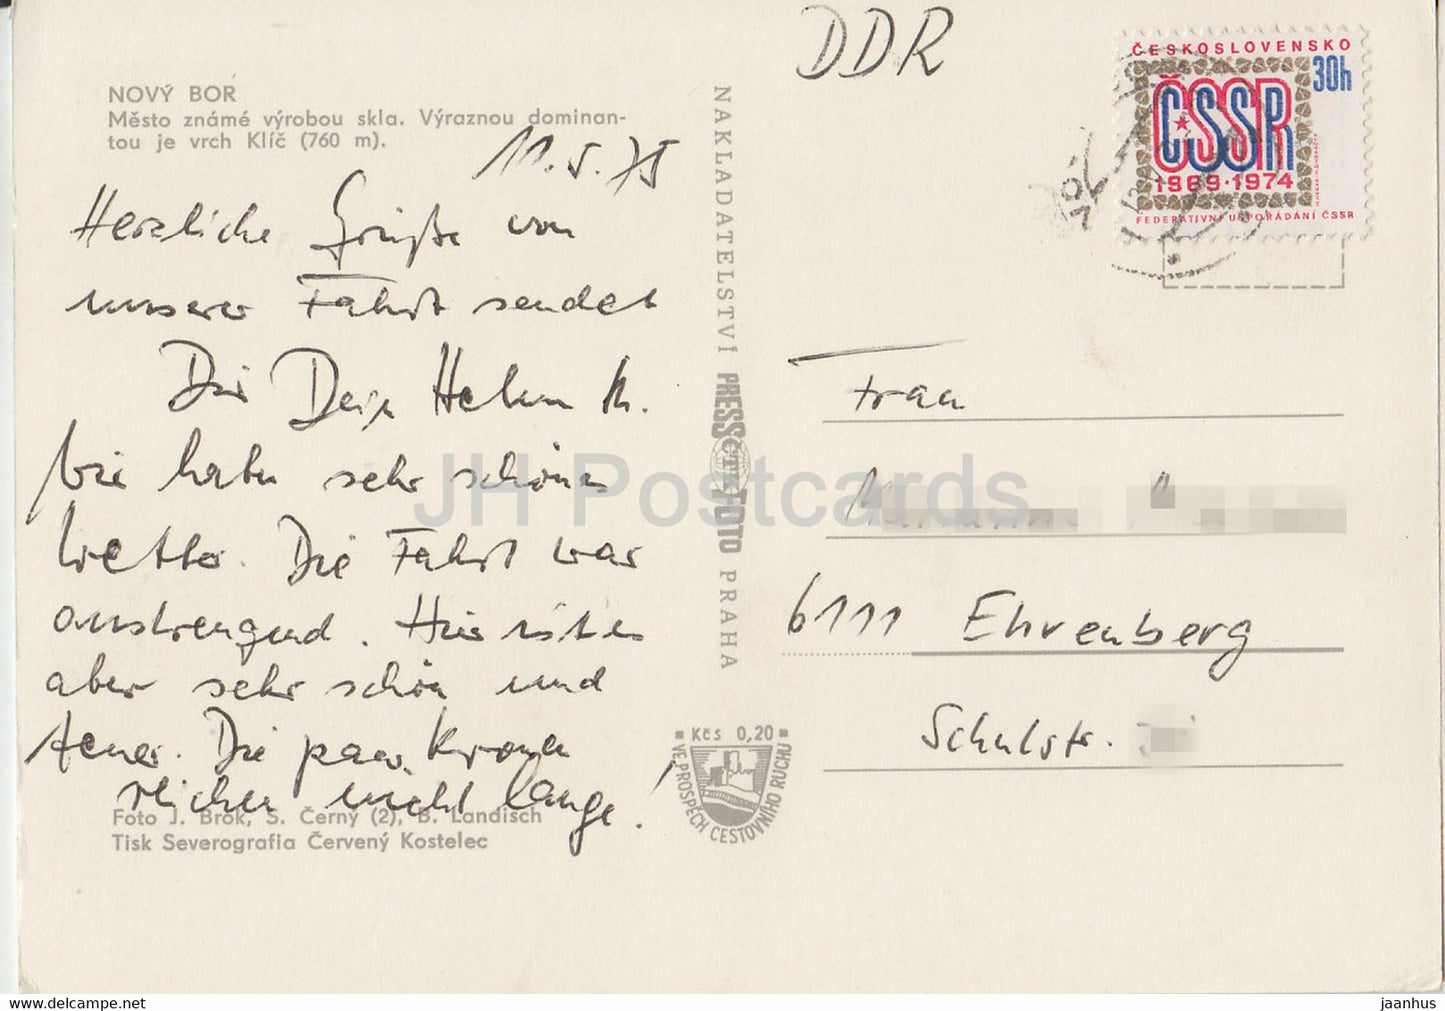 NOVÝ BOR
Město známé výrobou skla. Výraznou dominan-
tou je vrch Klíč (760 m).
11.5.75
Herzliche Grüße von
unserer Fahrt sendet
Dir Dein Helm M.
Wir haben sehr schönes
Wetter. Die Fahrt war
anstrengend. Hier ist es
aber sehr schön und
teuer. Die paar Kronen
reichen nicht lange.
Foto J. Brok, S. Černý (2), B. Landisch
Tisk Severografia Červený Kostelec
NAKLADATELSTVÍ PRESSFOTO PRAHA
ČTK
Kčs 0,20
VE PROSPĚCH CESTOVNÍHO RUCHU
DDR
ČESKOSLOVENSKO
30h
ČSSR
1969·1974
FEDERATIVNÍ USPOŘÁDÁNÍ ČSSR
Frau
6111 Ehrenberg
Schulstr.
JH Postcards
www.delcampe.net
jaanhus